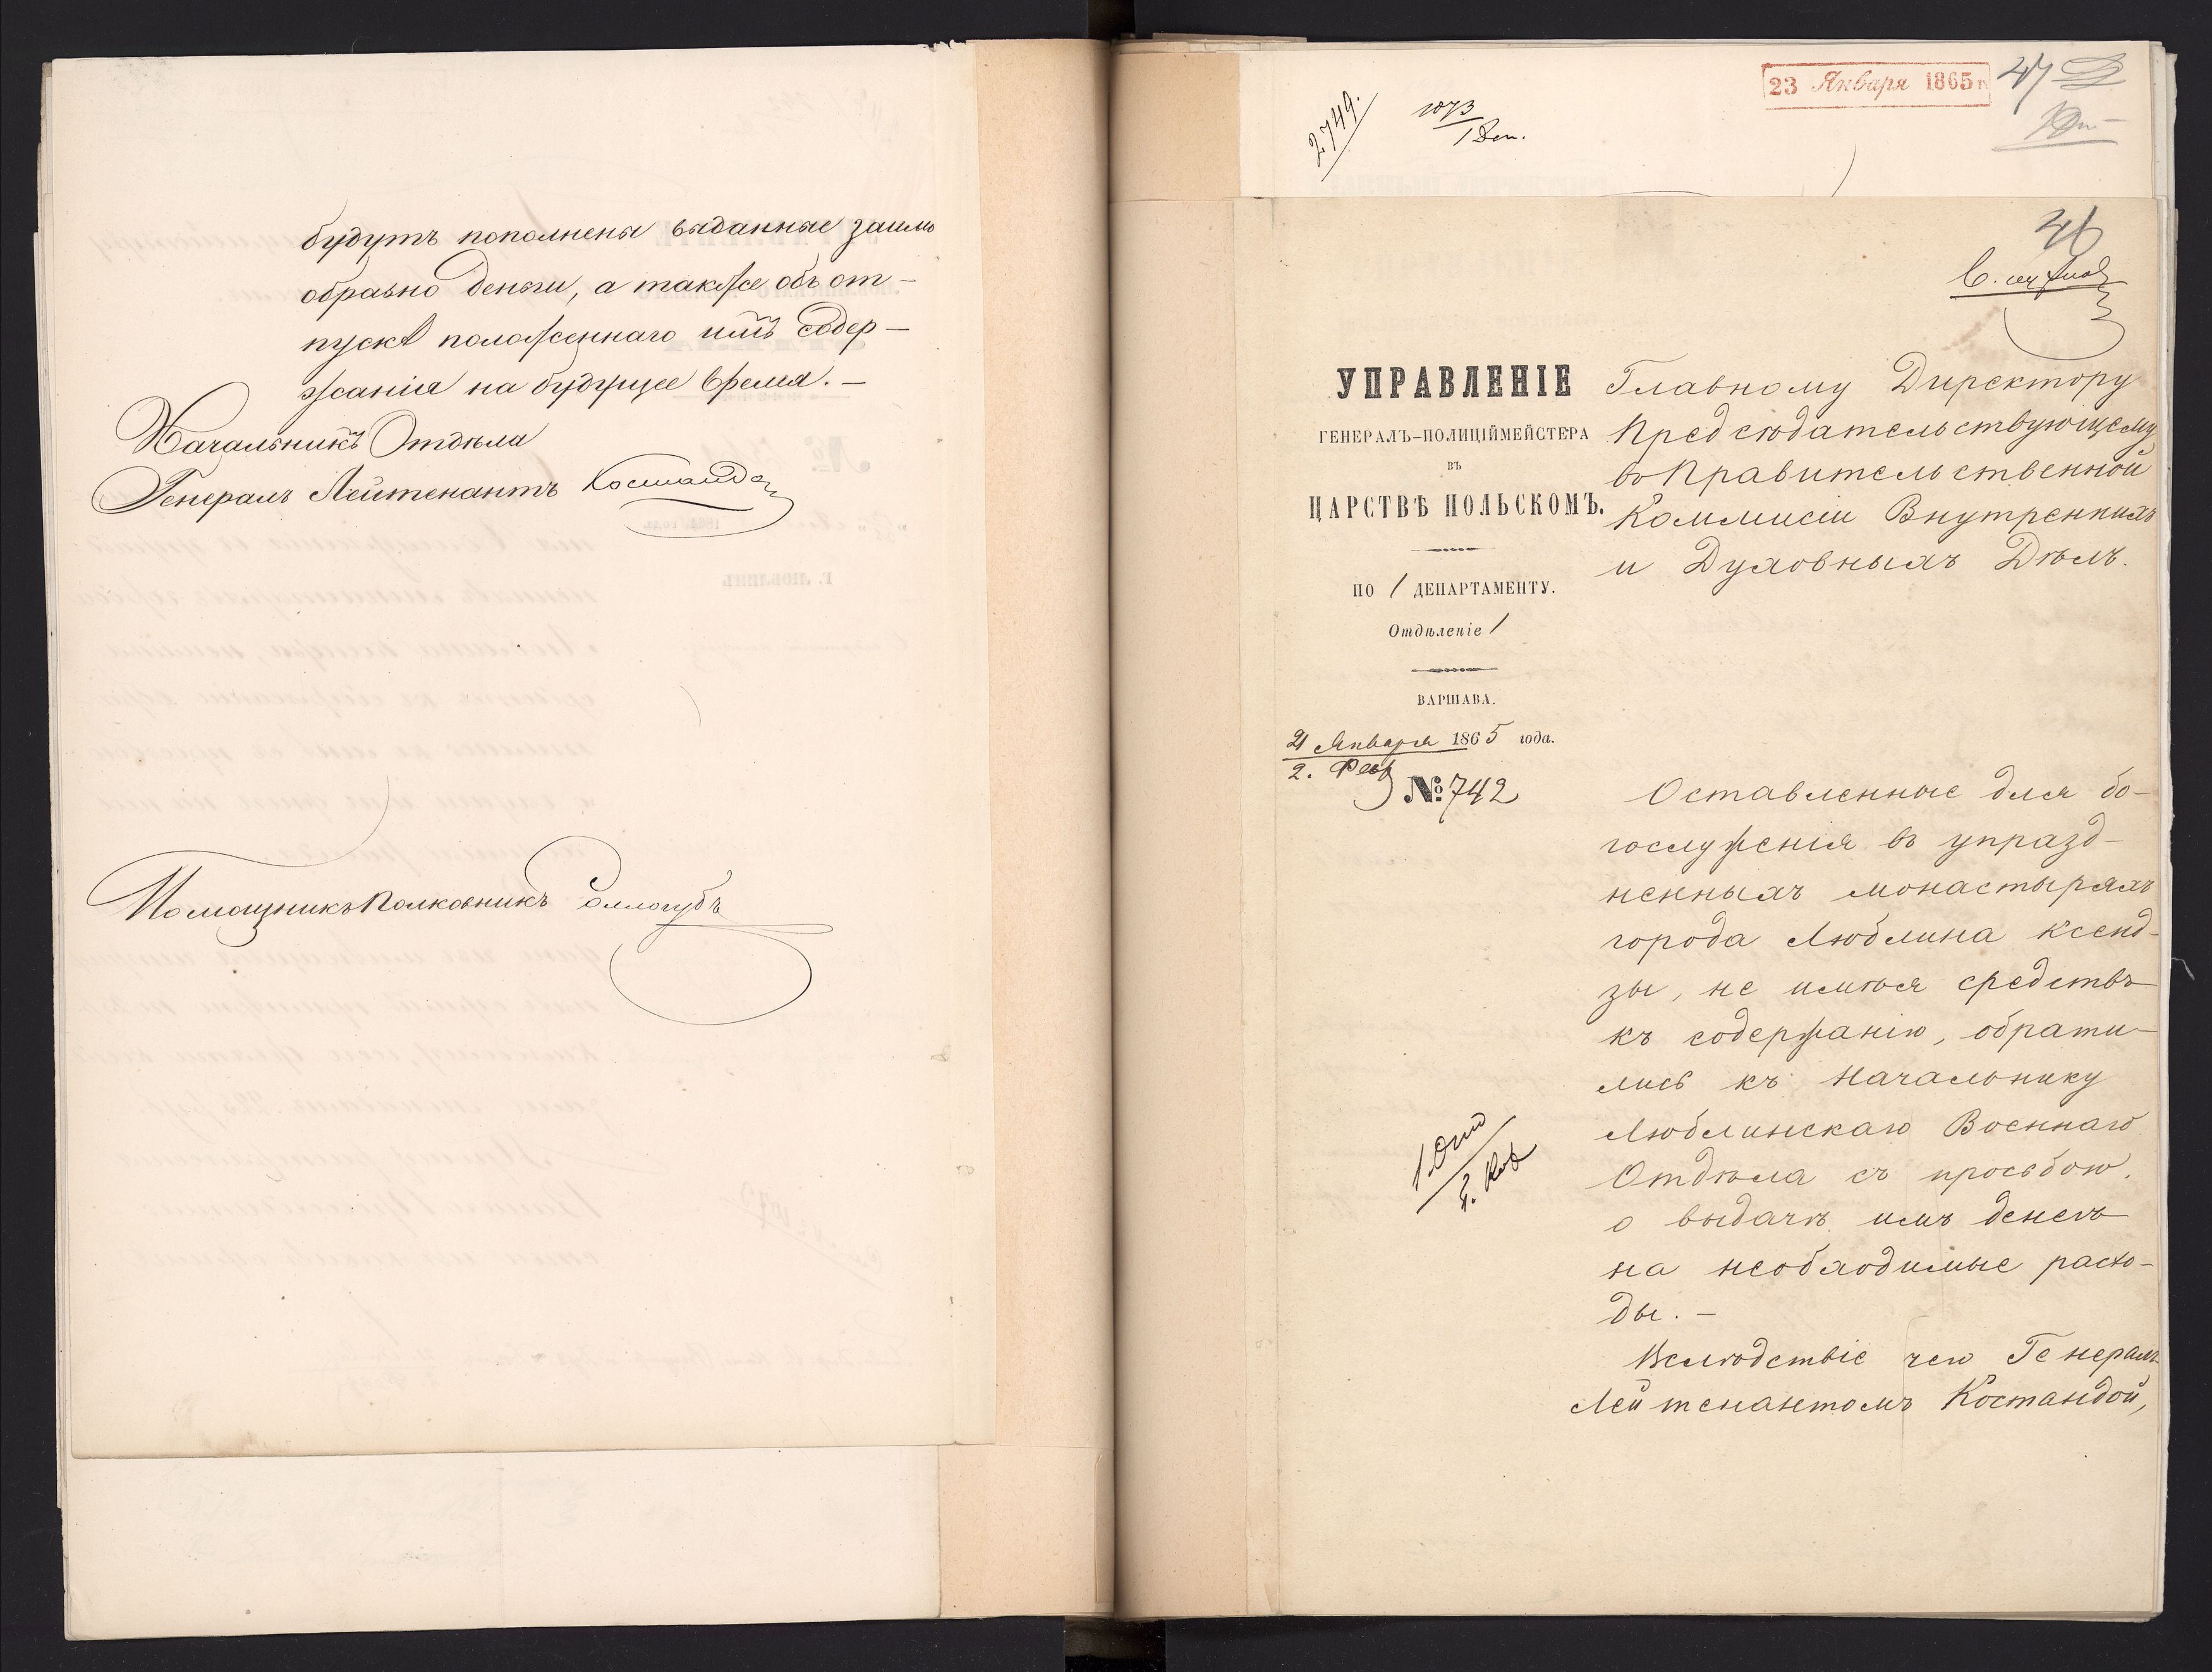 будутъ пополнены выданные заимо
образно деньги, а также объ от-
пускѣ положеннаго имъ содер-
жанія на будущее время. -
Начальникъ Отдѣла
Генералъ Лейтенантъ Костанда
Помощникъ Полковникъ Соллогубъ
23 Января 1865 г.
47
2749.
1073
1 Деп.
46
УПРАВЛЕНІЕ
ГЕНЕРАЛЪ-ПОЛИЦІЙМЕЙСТЕРА
ВЪ
ЦАРСТВѢ ПОЛЬСКОМЪ.
ПО 1 ДЕПАРТАМЕНТУ.
Отдѣленіе 1
ВАРШАВА.
21 Января 1865 года.
2. Февр
№ 742
Главному Директору
Предсѣдательствующему
въ Правительственной
Коммисіи Внутреннихъ
и Духовныхъ Дѣлъ.
Оставленные для бо-
гослуженія въ упразд-
ненныхъ монастыряхъ
города Люблина ксенд-
зы, не имѣя средствъ
къ содержанію, обрати-
лись къ Начальнику
Люблинскаго Военнаго
Отдѣла съ просьбою
о выдачѣ имъ денегъ
на необходимые расхо-
ды. -
Вслѣдствіе чего Генералъ
Лейтенантомъ Костандой,